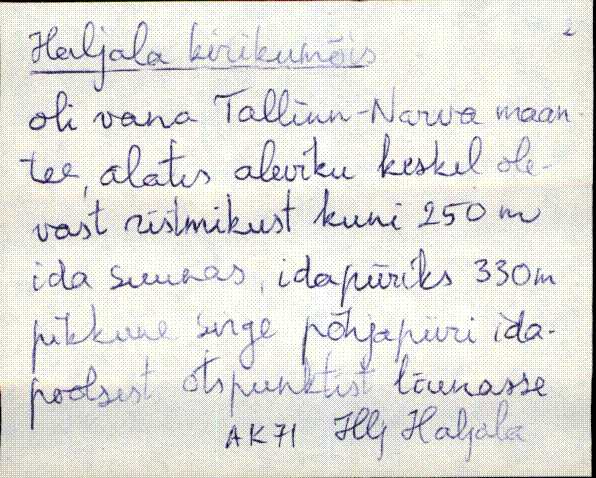 2
Haljala kirikumõis
oli vana Tallinn-Narva maan-
tee, alates aleviku keskel ole-
vast ristmikust kuni 250 m
ida suunas, idapiiriks 330 m
pikkune sirge põhjapiiri ida-
poolsest otspunktist lõunasse
AK 71 Hlj Haljala